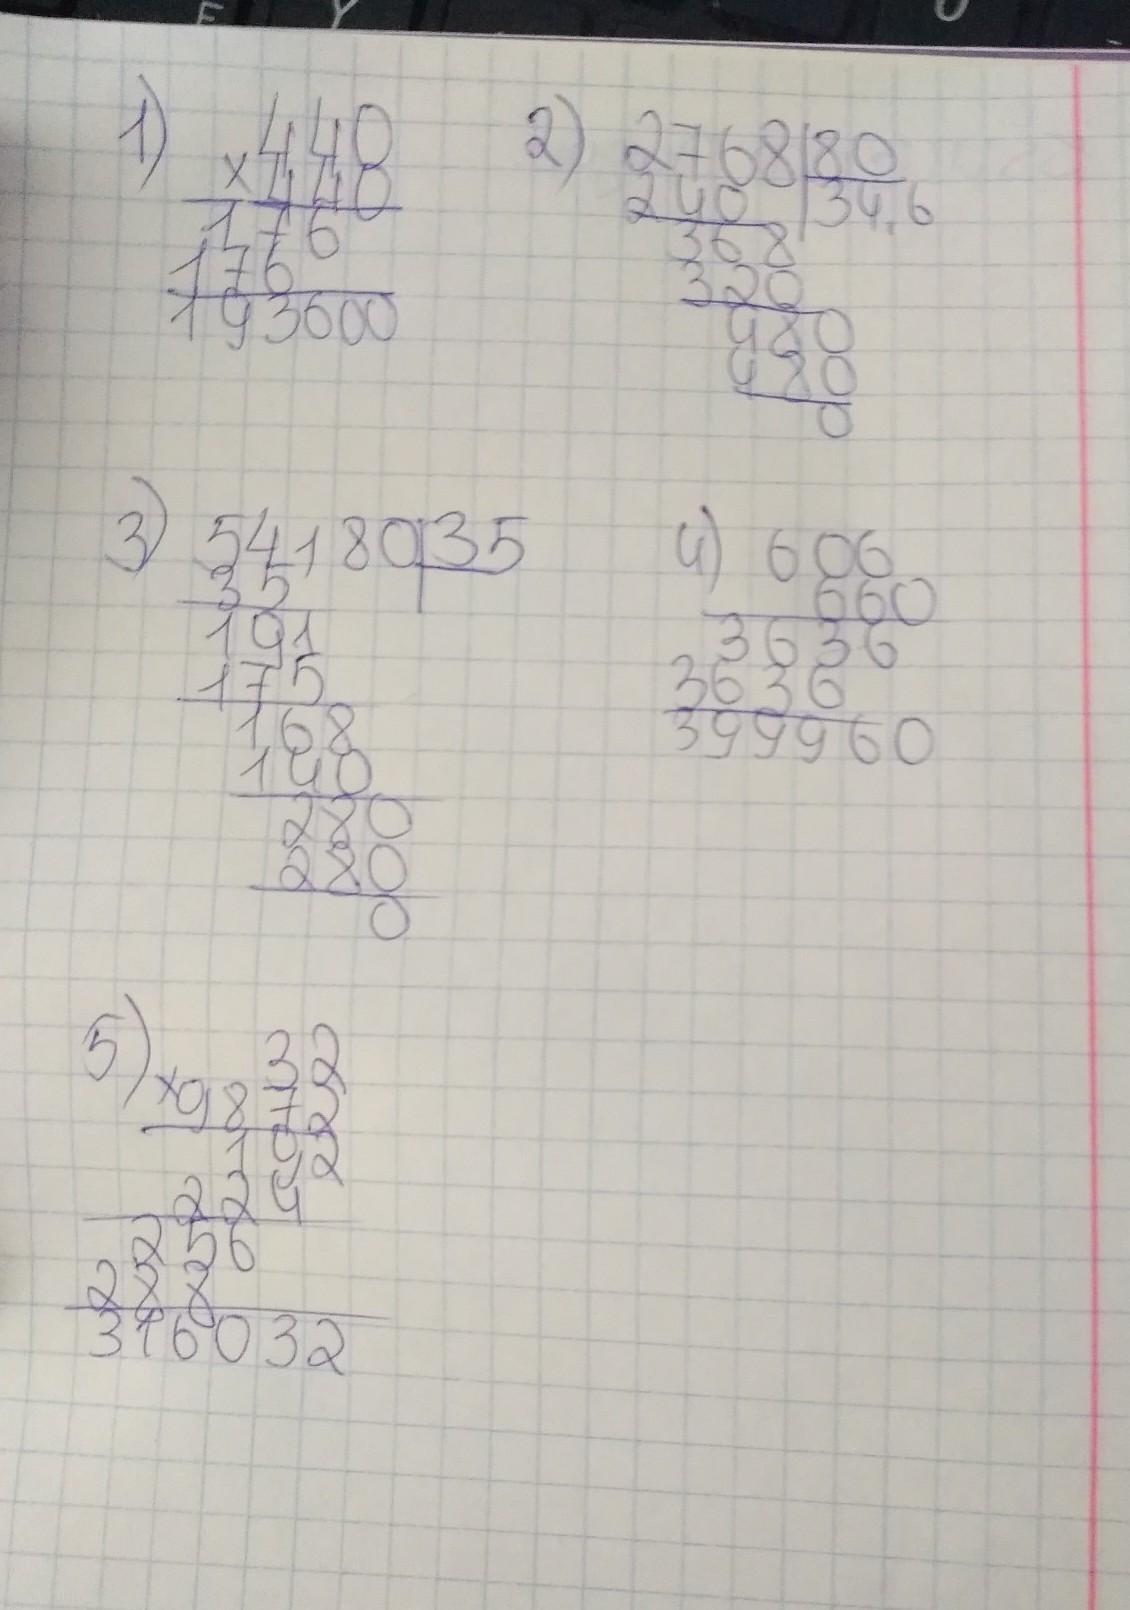 F Y U
1) 440
× 440
176
176
193600
2) 2768|80
240 |34,6
368
320
480
480
0
3) 54180|35
35
191
175
168
140
280
280
0
4) 606
660
3636
3636
399960
5) 32
× 9872
192
224
256
288
316032